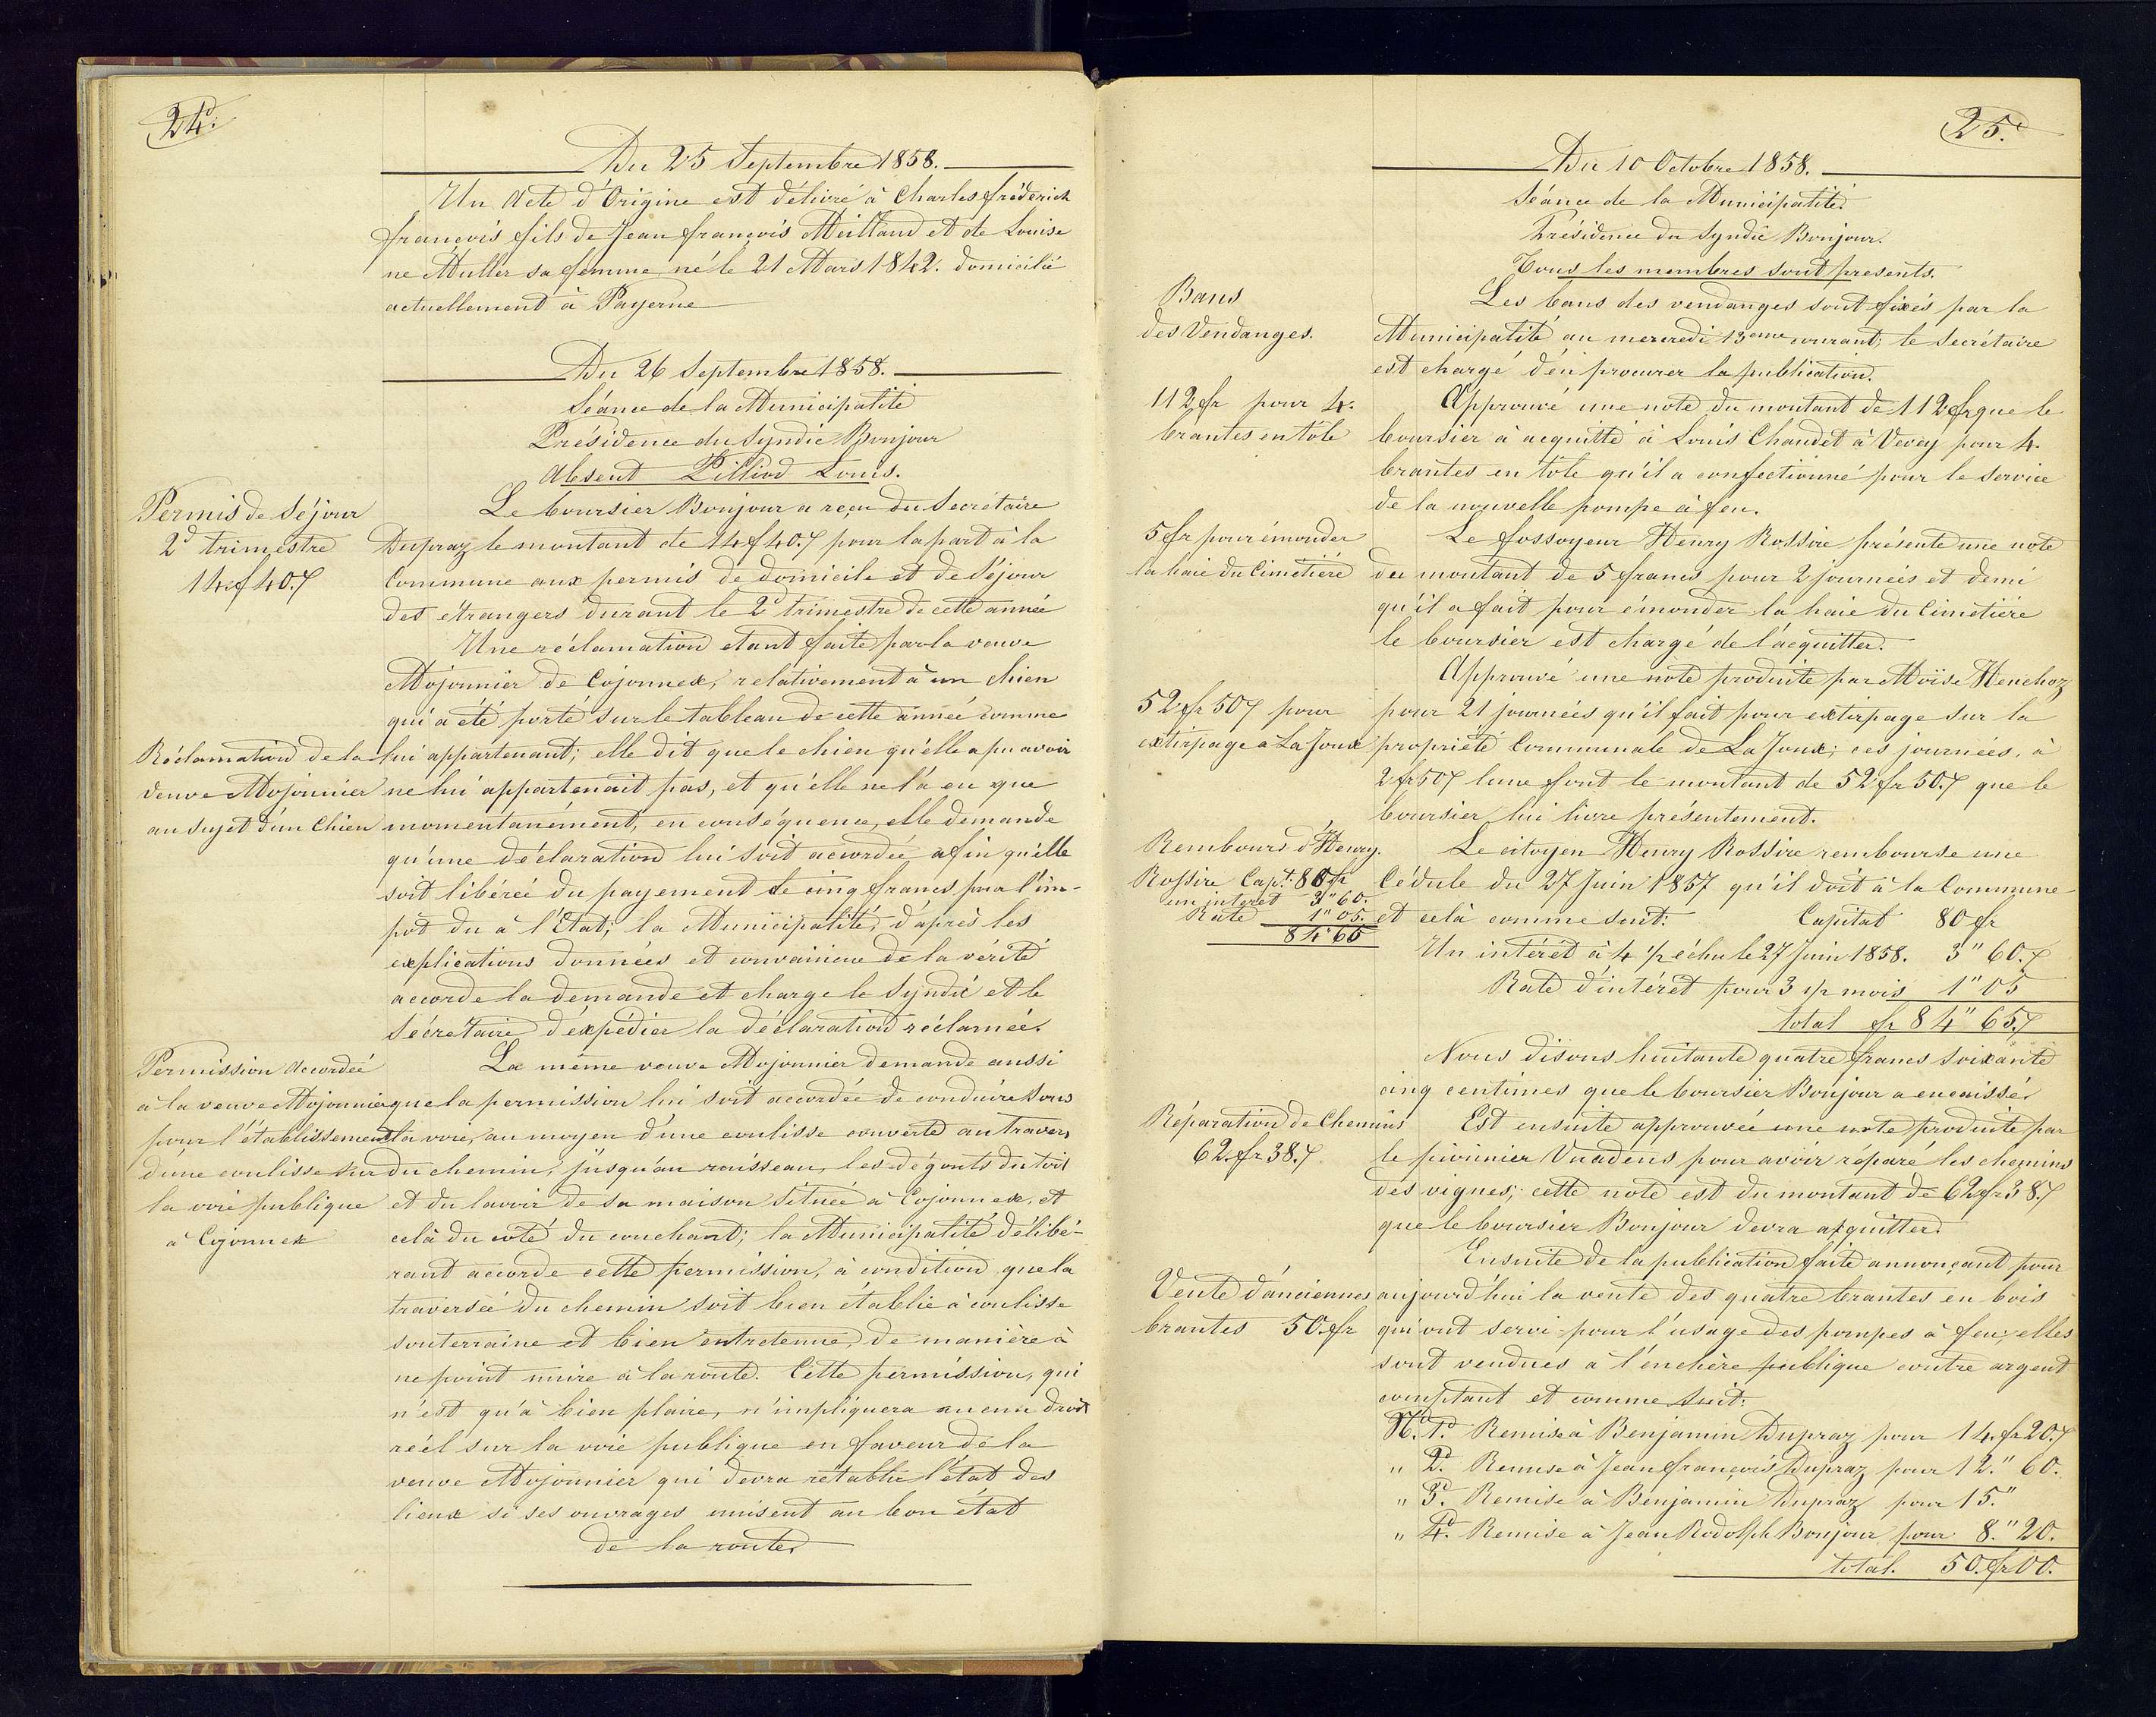 24.
Du 25 Septembre 1858.
Un Acte d'Origine est délivré à Charles fréderich
françois fils de Jean françois Meilland et de Louise
ne Muller sa femme, né le 21 Mars 1842. domicilié
actuellement à Payerne
Du 26 Septembre 1858.
Séance de la Municipalité
Présidence du Syndic Bonjour
Absent Pilliod Louis.
Permis de Séjour
2d trimestre
14f 40.7
Le boursier Bonjour a reçu du Secrétaire
Dupraz le montant de 14f 40.7 pour la part à la
Commune aux permis de domicile et de Séjour
des étrangers durant le 2d trimestre de cette année
Une réclamation etant faite par la veuve
Mojonnier de Cojonnex, relativement à un chien
qui a été porté sur le tableau de cette année comme
Réclamation de la
veuve Mojonnier
au Sujet d'un Chien
lui appartenant; elle dit que le chien qu'elle a pu avoir
ne lui appartenait pas, et qu'elle ne l'a eu que
momentanément, en conséquence, elle demande
qu'une déclaration lui soit accordée afin qu'elle
soit libérée du payement de cinq francs pour l'im-
pôt du à l'Etat; la Municipalité, d'après les
explications données et convaincue de la vérité
accorde la demande et charge le Syndic et le
Secrétaire d'expédier la déclaration réclamée.
Permission Accordée
a la veuve Mojonnier
pour l'établissement
d'une coulisse sur
la voie publique
à Cojonnex
La même veuve Mojonnier demande aussi
que la permission lui soit accordée de conduire sous
la voie, au moyen d'une coulisse couverte au travers
du chemin, jusqu'au ruisseau, les égouts du toit
et du lavoir de sa maison située à Cojonnex, et
celà du coté du couchant; la Municipalité délibé-
rant accorde cette permission, à condition que la
traversée du chemin soit bien établie à coulisse
souterraine et bien entretenue, de manière à
ne point nuire à la route. Cette permission, qui
n'est qu'à bien plaire, n'impliquera aucun droit
réel sur la voie publique en faveur de la
veuve Mojonnier qui devra rétablir l'état des
lieux si ses ouvrages nuisent au bon état
de la route.
25.
Du 10 Octobre 1858.
Séance de la Municipalité.
Présidence du Syndic Bonjour.
Tous les membres sont presents.
Bans
des Vendanges.
Les bans des vendanges sont fixés par la
Municipalité au mercredi 13eme courant; le Secrétaire
est chargé d'en procurer la publication.
112 fr pour 4.
brantes en tôle
Approuvé une note du montant de 112 fr que le
boursier à acquitté à Louis Chaudet à Vevey pour 4.
brantes en tôle qu'il a confectionné pour le service
de la nouvelle pompe à feu.
5 fr pour émonder
la haie du Cimetière
Le fossoyeur Henry Rossire présente une note
du montant de 5 francs pour 2 journées et demi
qu'il a fait pour émonder la haie du Cimetière
le boursier est chargé de l'acquitter.
52 fr 50 7 pour
extirpage a La Joux
Approuvé une note produite par Moïse Henchoz
pour 21 journées qu'il fait pour extirpage sur la
propriété Communale de La Joux; ces journées, à
2 fr 50 7 lune font le montant de 52 fr 50.7 que le
boursier lui livre présentement.
Rembours d'Henry
Rossire Capt. 80 fr
un interet 3" 60.
Rate 1" 05.
84" 65
Le citoyen Henry Rossire rembourse une
Cédule du 27 Juin 1857 qu'il doit à la Commune
et celà comme suit: Capital 80 fr
Un intérêt à 4 1/2 échu le 27 Juin 1858. 3" 60.7
Rate d'intérêt pour 3 1/2 mois 1" 05
total fr 84" 65.7
Nous disons huitante quatre francs soixante
cinq centimes que le boursier Bonjour a encaissé.
Réparation de Chemins
62 fr 38.7
Est ensuite approuvée une note produite par
le pionnier Vuadens pour avoir réparé les chemins
des vignes; cette note est du montant de 62 fr 38.7
que le boursier Bonjour devra acquitter.
Vente d'anciennes
brantes 50 fr
Ensuite de la publication faite annonçant pour
aujourd'hui la vente des quatre brantes en bois
qui ont servi pour l'usage des pompes à feu, elles
sont vendues a l'enchère publique contre argent
comptant et comme suit:
No. 1. Remise à Benjamin Dupraz pour 14. fr 20.7
" 2. Remise à Jean françois Dupraz pour 12." 60.
" 3. Remise à Benjamin Dupraz pour 15."
" 4. Remise à Jean Rodolph Bonjour pour 8." 20.
total. 50. fr 00.